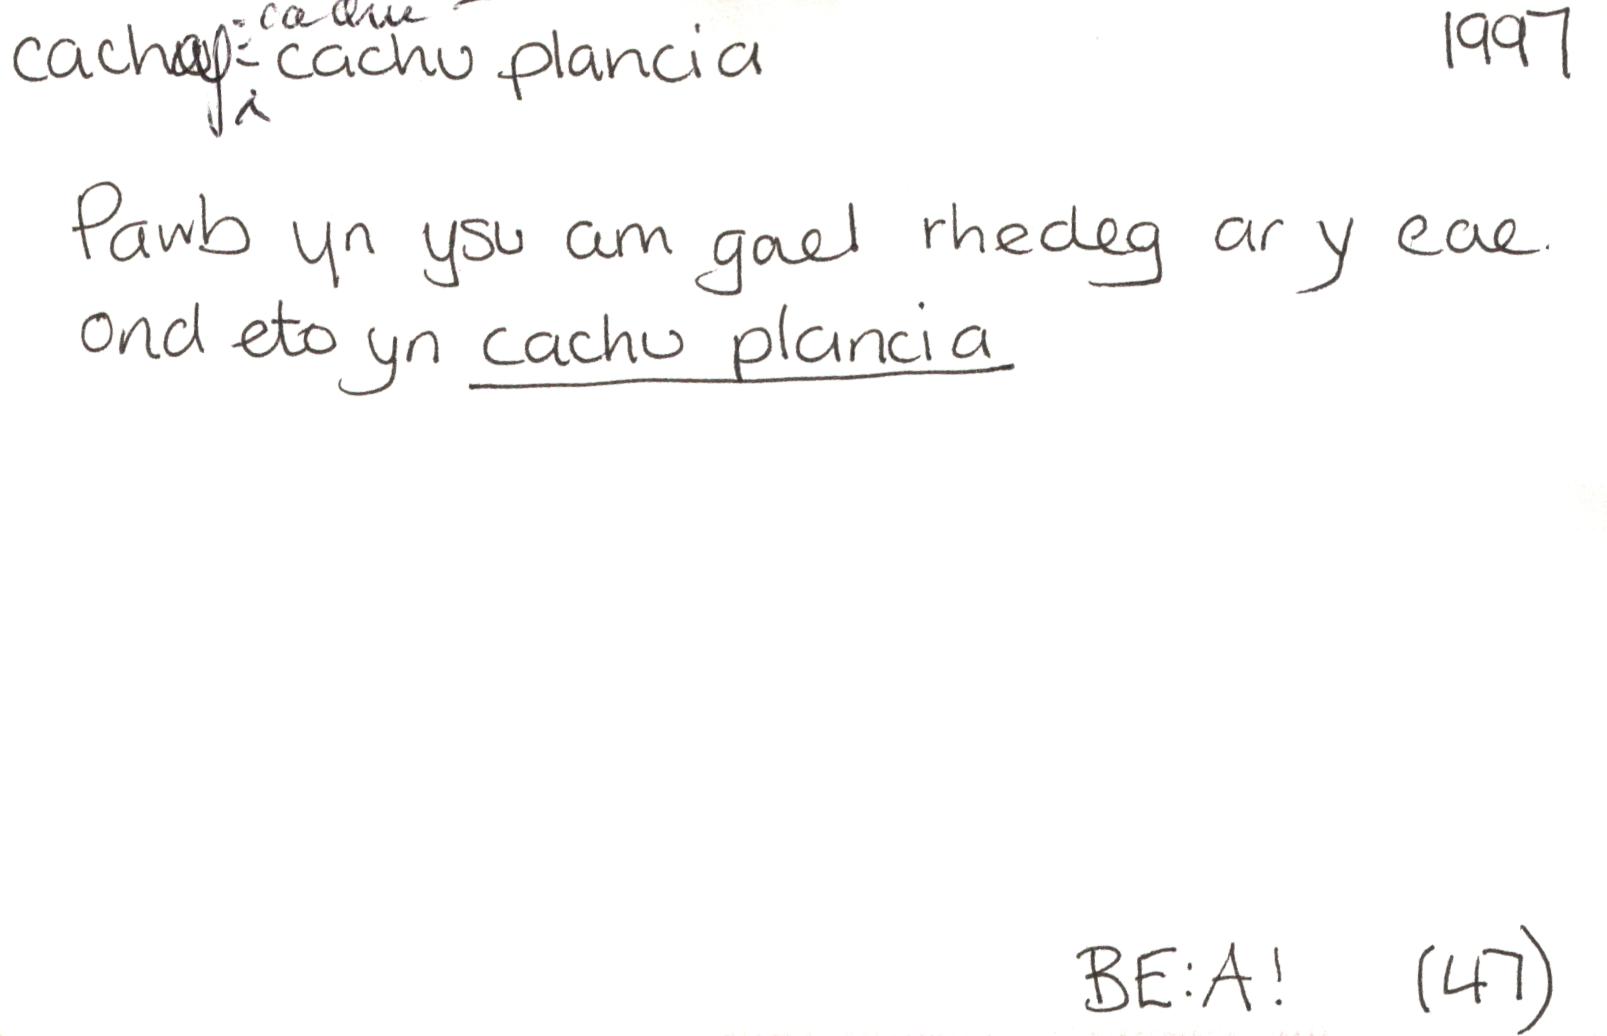 cachu plancia 1997
Pawb yn ysu am gael rhedeg ar y cae
ond eto yn cachu plancia
BE:A! (47)